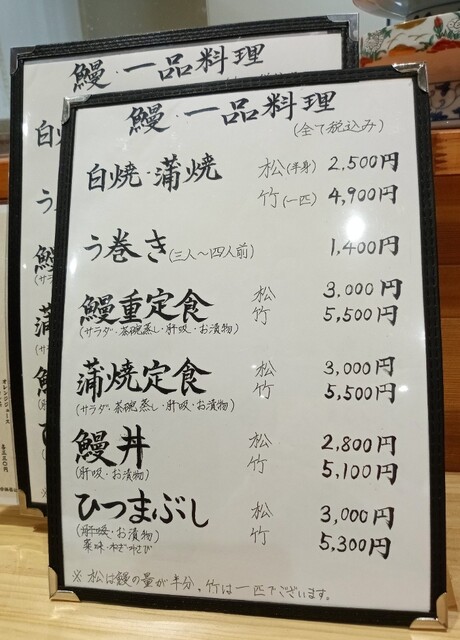 鰻・一品料理
鰻・一品料理
(全て税込み)
白焼・蒲焼 松(半身) 2,500円
竹(一匹) 4,900円
う巻き(三人〜四人前) 1,400円
鰻重定食 松 3,000円
(サラダ・茶碗蒸し・肝吸・お漬物) 竹 5,500円
蒲焼定食 松 3,000円
(サラダ・茶碗蒸し・肝吸・お漬物) 竹 5,500円
鰻丼 松 2,800円
(肝吸・お漬物) 竹 5,100円
ひつまぶし 松 3,000円
(肝吸・お漬物) 竹 5,300円
薬味・ねぎ・わさび
※松は鰻の量が半分、竹は一匹でございます。
オレンジジュース